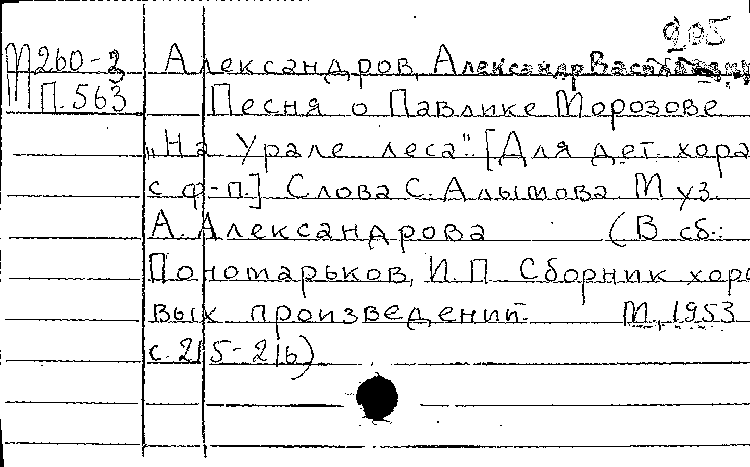 205
М260-3 Александров, Александр Васильевич
П.563 Песня о Павлике Морозове
„На Урале леса". [Для дет. хора
с ф-п.] Слова С. Алымова Муз.
А. Александрова (В сб.:
Пономарьков, И.П. Сборник хоро
вых произведений. М., 1953
с. 215-216)